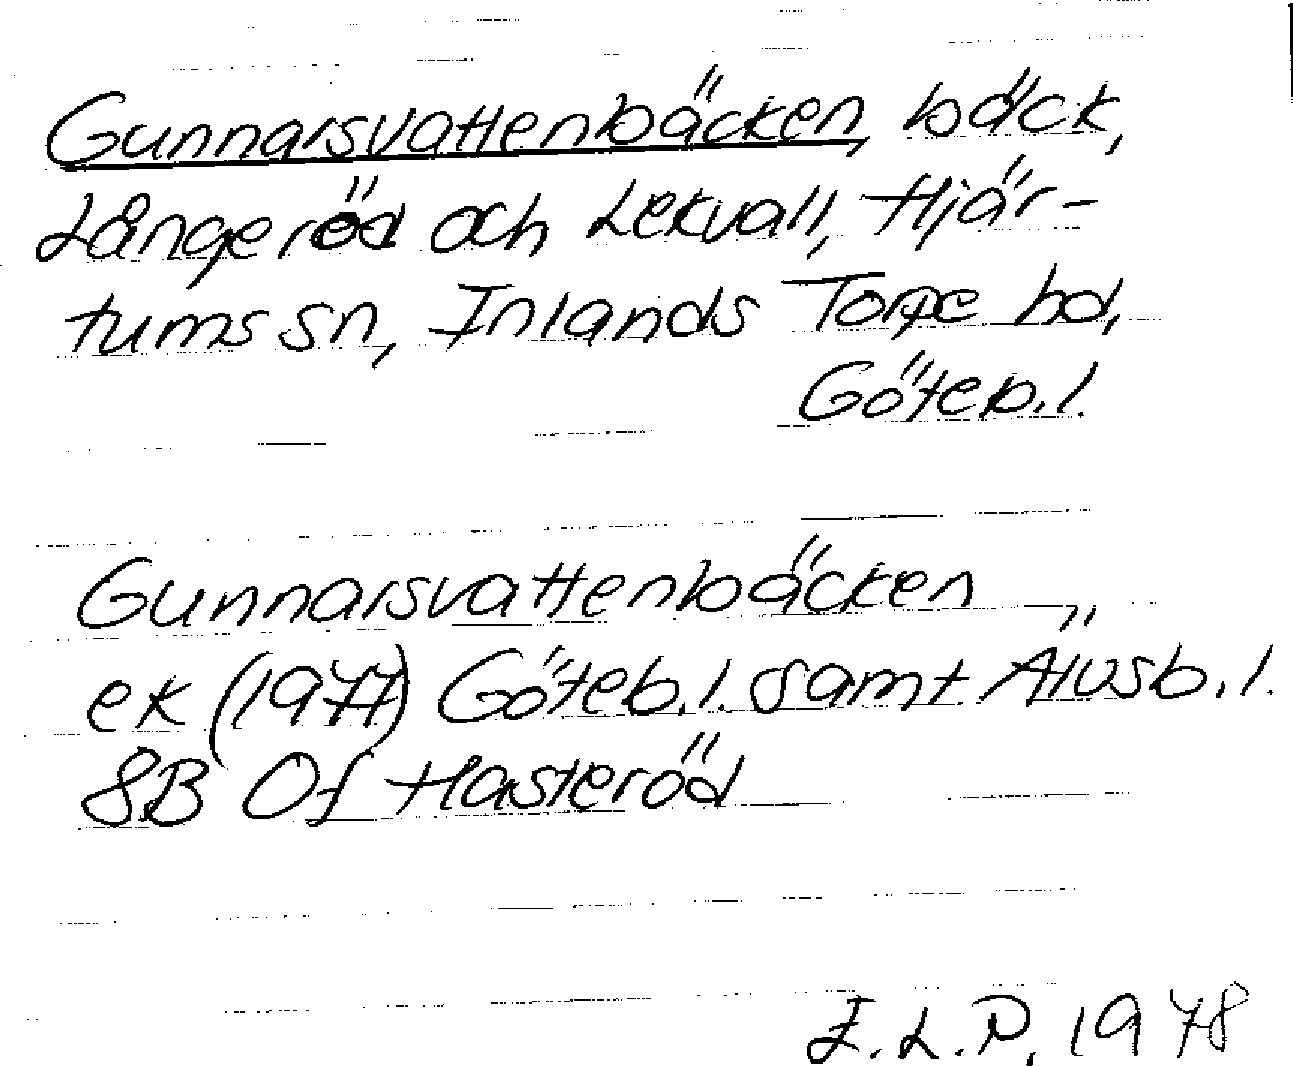 Gunnarsvattenbäcken, bäck,
Långeröd och Lekvall, Hjär-
tums sn, Inlands Torpe hd,
Göteb. l.
Gunnarsvattenbäcken
ek (1977) Göteb. l. samt Älvsb. l.
8B Of Hasteröd
E.L.P. 1978